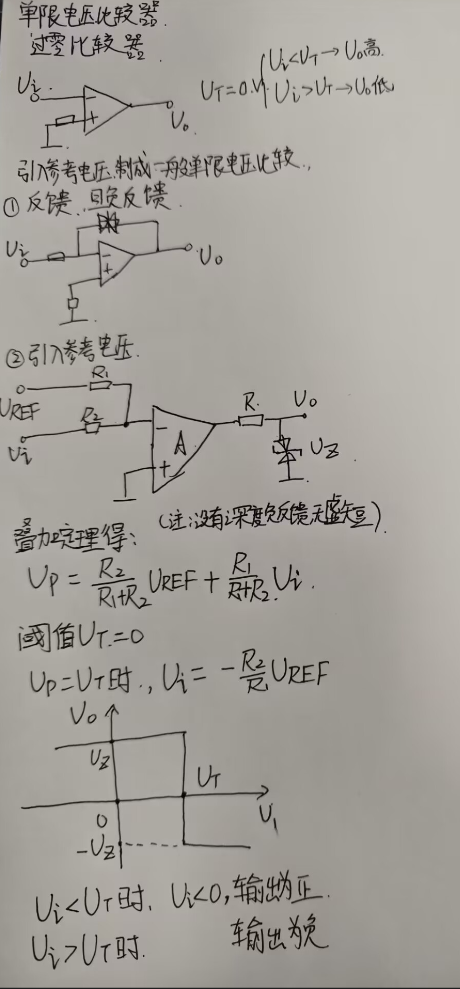 单限电压比较器.
过零比较器.
Ui
Uo
UT=0.V
Ui<UT→Uo高.
Ui>UT→Uo低
引入参考电压.制成一般单限电压比较.
①反馈.
负反馈.
Ui
Uo
②引入参考电压.
R1
UREF
R2
Ui
A
R.
Uo
UZ
(注:没有深度负反馈无虚短)
叠加定理得:
UP=R2/(R1+R2) UREF+R1/(R1+R2) Ui.
阈值UT=0
UP=UT时.,Ui=-R2/R1 UREF
Uo
UZ
UT
0
U1
-UZ
Ui<UT时. Ui<0,输出为正.
Ui>UT时. 输出为负